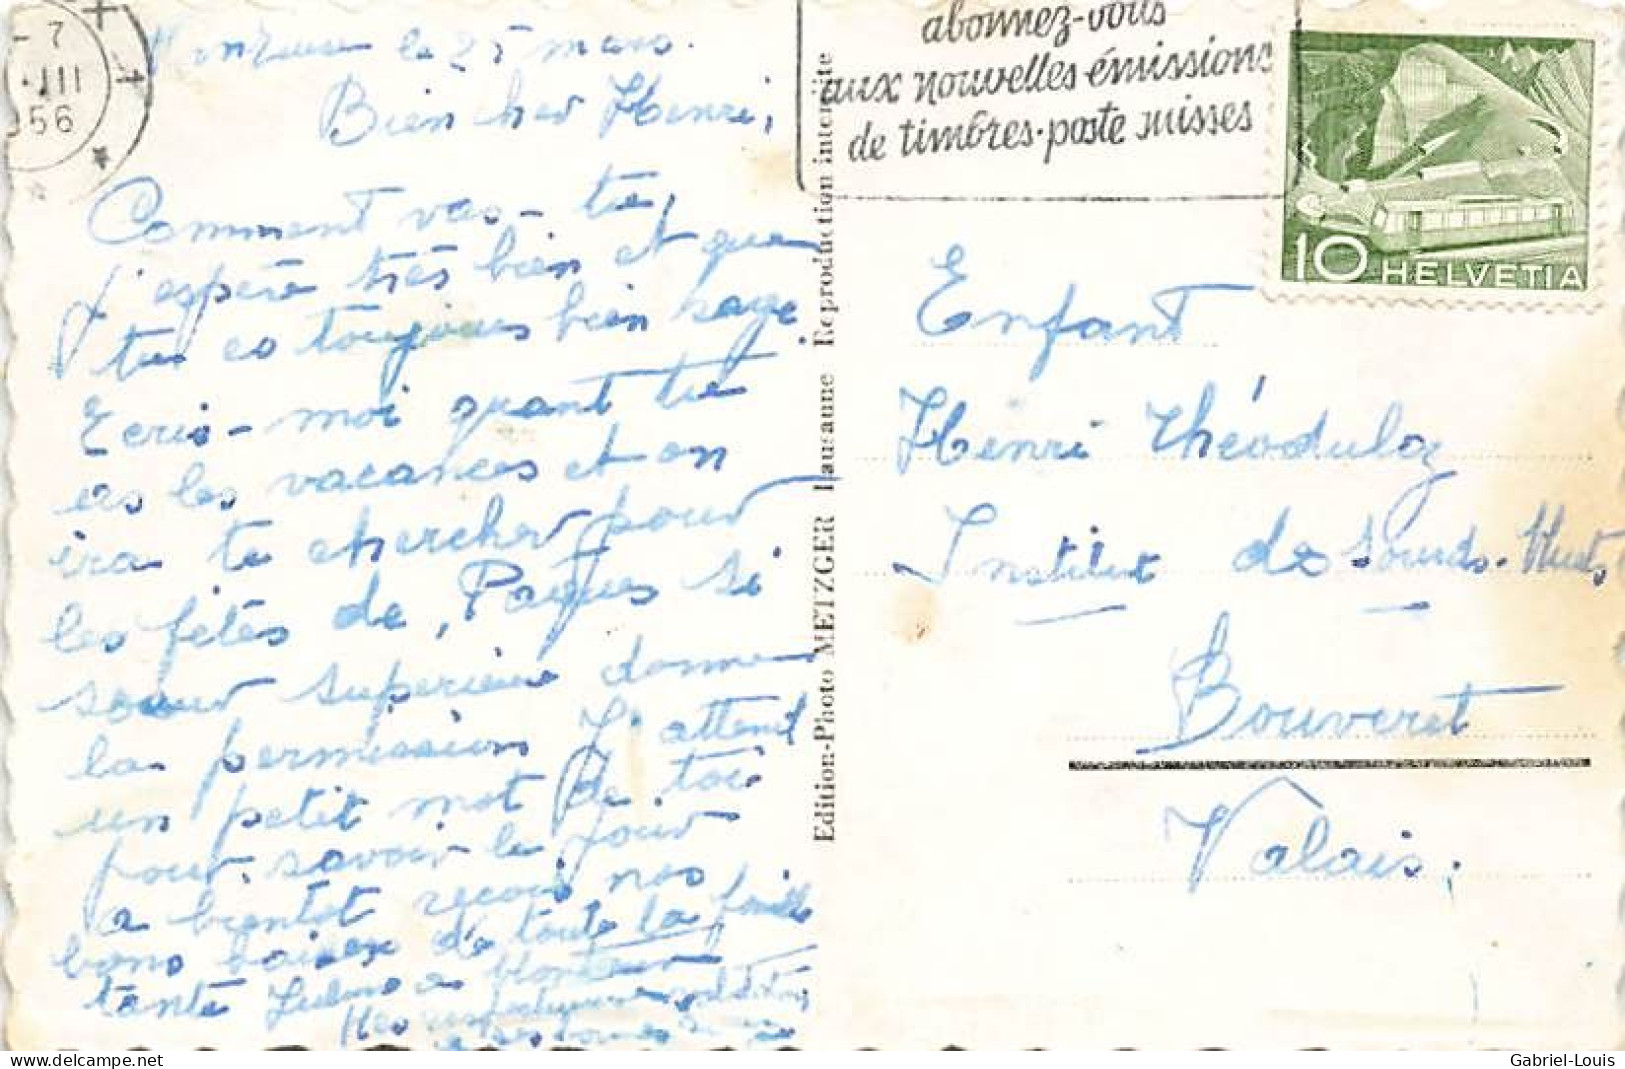 7
III
956
abonnez-vous
aux nouvelles émissions
de timbres-poste suisses
10 HELVETIA
le 25 mars.
Bien cher Henri,
Comment vas-tu
J'espère très bien et que
tu es toujours bien sage
Ecris-moi quant tu
as les vacances et on
ira te chercher pour
les fêtes de Paques si
soeur superieure donne
la permission J'attend
un petit mot de toi
pour savoir le jour
a bientot reçois nos
bons baiser de toute la famille
tante
Mes respectueuses salutations
Edition-Photo METZGER Lausanne Reproduction interdite
Enfant
Henri Théoduloz
Institut de Sourds-Muets
Bouveret
Valais.
Gabriel-Louis